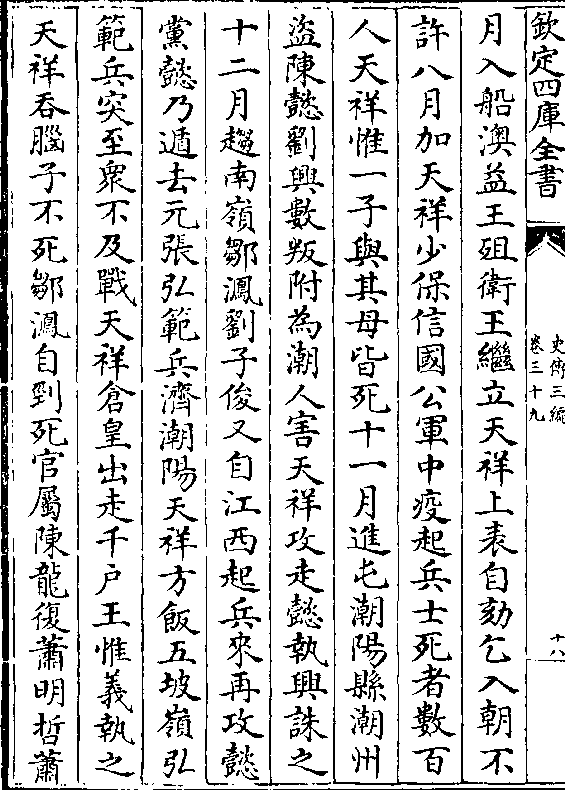 欽定四庫全書
史傳三編
卷三十九
十八
月入船澳益王殂衛王繼立天祥上表自劾乞入朝不
許八月加天祥少保信國公軍中疫起兵士死者數百
人天祥惟一子與其母皆死十一月進屯潮陽縣潮州
盜陳懿劉興數叛附為潮人害天祥攻走懿執興誅之
十二月趨南嶺鄒㵯劉子俊又自江西起兵來再攻懿
黨懿乃遁去元張弘範兵濟潮陽天祥方飯五坡嶺弘
範兵突至衆不及戰天祥倉皇出走千户王惟義執之
天祥吞腦子不死鄒㵯自剄死官屬陳龍復蕭明哲蕭